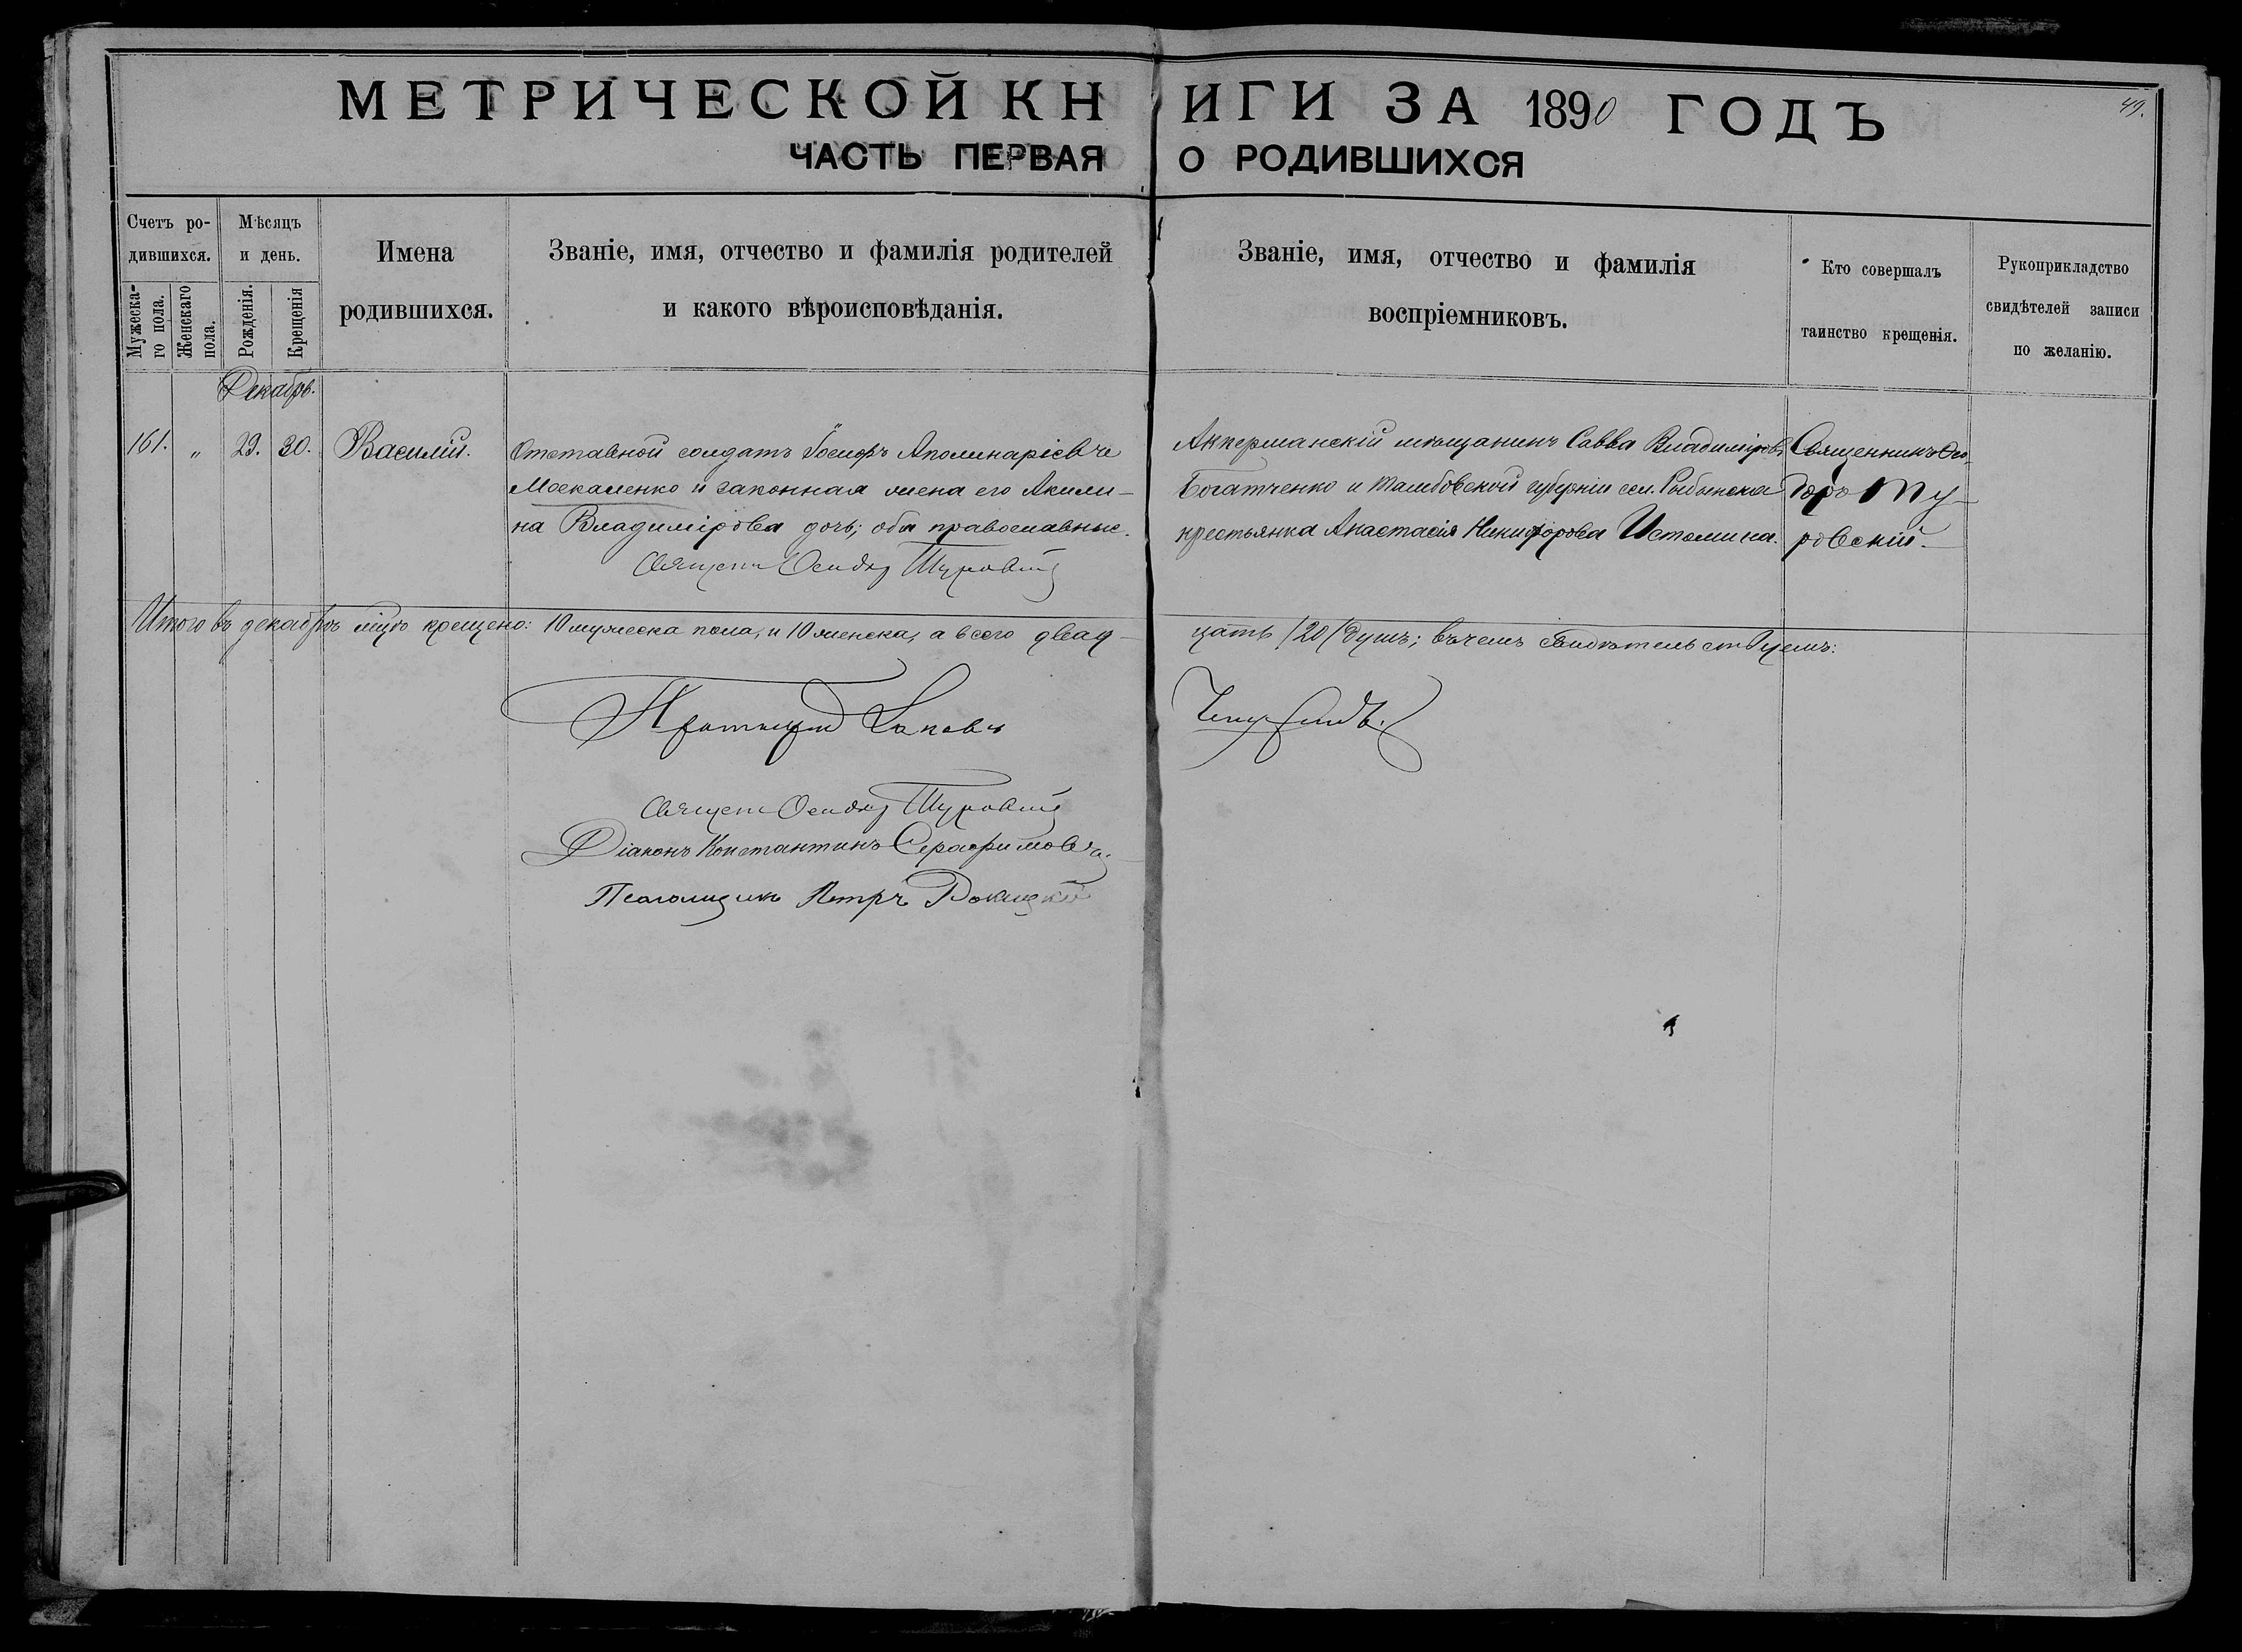 МЕТРИЧЕСКОЙ КНИГИ ЗА 1890 ГОДЪ
49.
ЧАСТЬ ПЕРВАЯ О РОДИВШИХСЯ
Счетъ ро-
дившихся.
Мужеска-
го пола.
Женскаго
пола.
Мѣсяцъ
и день.
Рожденія.
Крещенія
Имена
родившихся.
Званіе, имя, отчество и фамилія родителей
и какого вѣроисповѣданія.
Званіе, имя, отчество и фамилія
воспріемниковъ.
Кто совершалъ
таинство крещенія.
Рукоприкладство
свидѣтелей записи
по желанію.
Декабрь.
161. " 29. 30. Василій.
Отставной солдатъ Іосифъ Аполинаріевъ
Москаленко и законная жена его Акили-
на Владимірова дочь; оба православные.
Священ Туровскій
Аккерманскій мѣщанинъ Савва Владиміровъ
Богатченко и Тамбовской губерніи сел. Рыбинска
крестьянка Анастасія Никифорова Истомина.
Священникъ Ѳео-
доръ Ту-
ровскій.
Итого въ декабрѣ мцѣ крещено: 10 мужеска пола, и 10 женска, а всего двад-
цать /20/ душъ; въ чемъ свидѣтельствуемъ:
Протоіерей
Священ Туровскій
Діаконъ Константинъ Серафимовъ
Псаломщикъ Петръ Рокицкій